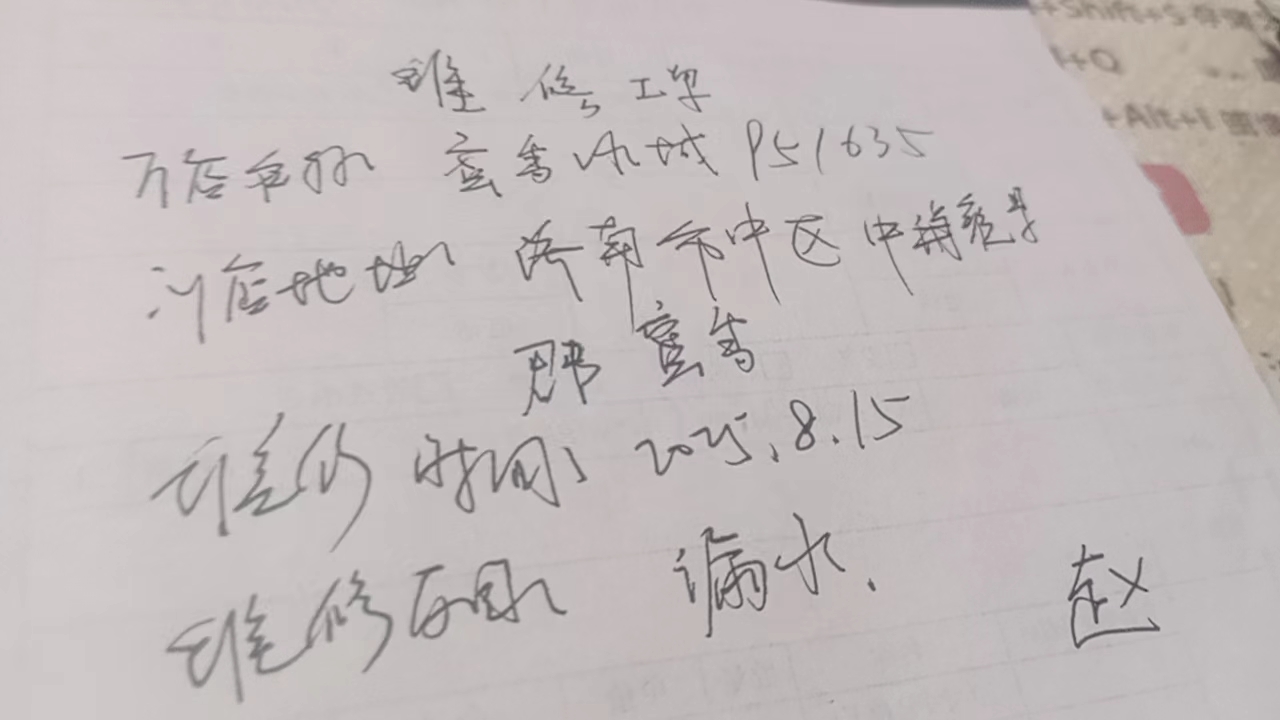 维修工单
门店名称 蜜雪冰城 P51635
门店地址 济南市中区中海
蜜雪
维修时间: 2025.8.15
维修项目: 漏水.
赵
+Shift+S
+Q
+Alt+I 图像